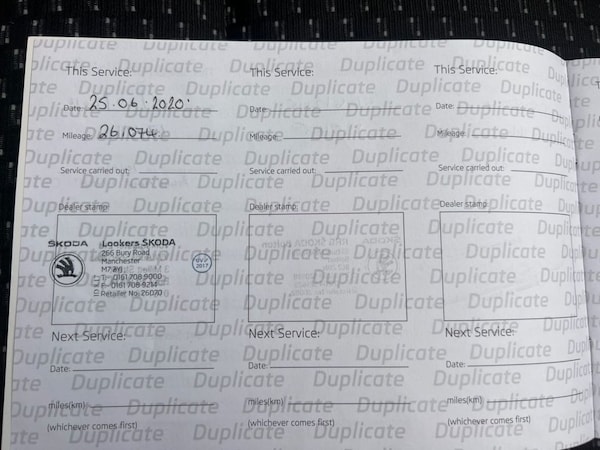 Duplicate Duplicate Duplicate Duplicate
This Service:
Date: 25.06.2020
Mileage: 26,074
Service carried out:
Dealer stamp:
SKODA
Lookers SKODA
266 Bury Road
Manchester
M7
0161 708 9000
0161 708 9214
Retailer No: 26070
2017
Next Service:
Date:
miles(km):
(whichever comes first)
This Service:
Date:
Mileage:
Service carried out:
Dealer stamp:
Next Service:
Date:
miles(km):
(whichever comes first)
This Service:
Date:
Mileage:
Service carried out:
Dealer stamp:
Next Service:
Date:
miles(km):
(whichever comes first)